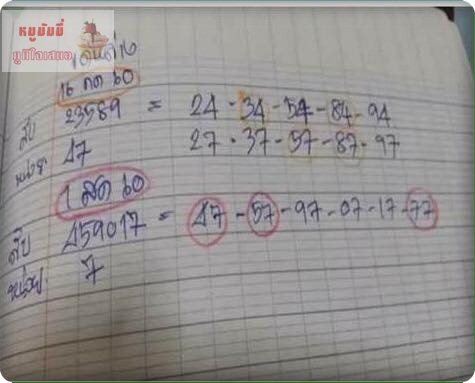 หมูมัมมี่
ภูมิใจเสนอ
16 กค 60
สิบ 23589 = 24 - 34 - 54 - 84 - 94
หน่วย 47 27 - 37 - 57 - 87 - 97
1 สค 60
สิบ 459017 = 47 - 57 - 97 - 07 - 17 - 77
หน่วย 7